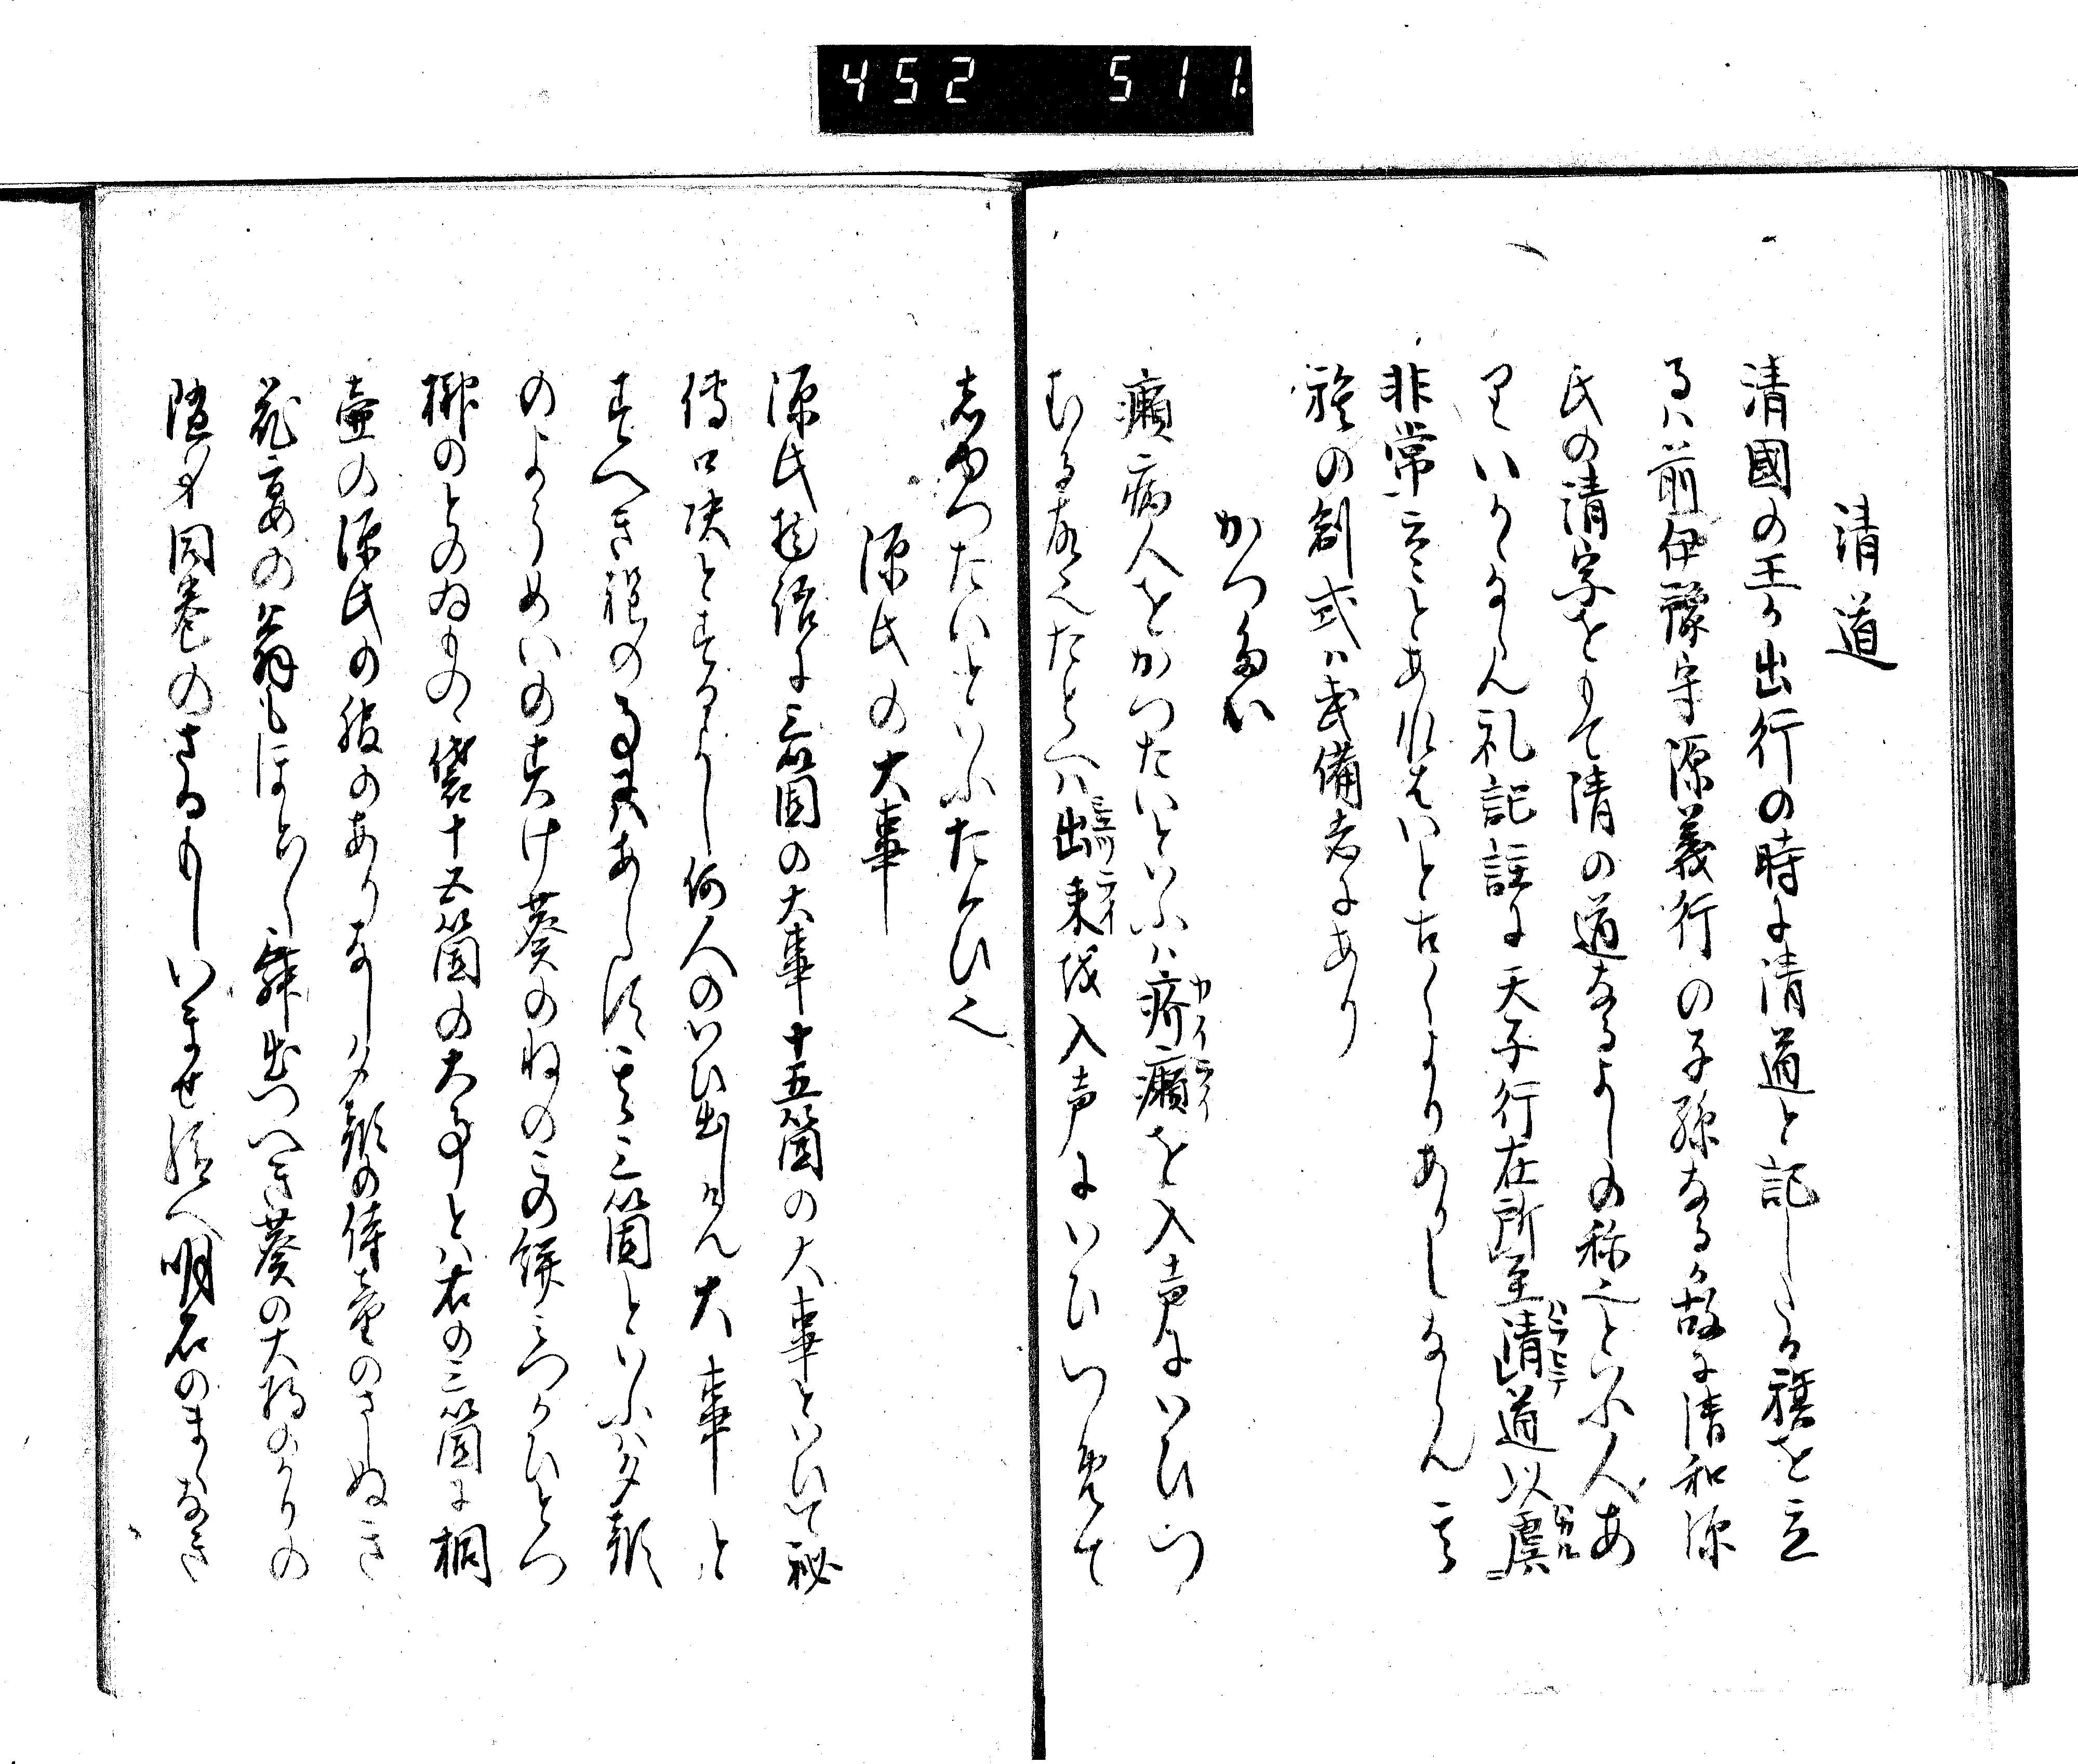 452 511
清道
清國の王か出行の時に清道と記したる旗を立
るハ前伊豫守源義行の子孫なるか故に清和源
氏の清字をもて清の道なるよしの称也といふ人あ
りいかゝあらん礼記註に天子行在所至清道以虞
ハラヒテ
ハカル
非常言とあれはいと古くよりありしならん其
旌の創式ハ武備志にあり
かつたい
癩病人をかつたいといふハ疥癩を入声にいひつ
カイライ
むる故也たとへハ出来を入声にいひつめて
シユツライ
しゆつたいといふたくひ也
源氏の大事
源氏物語に三箇の大事十五箇の大事といひて秘
傳口决とするよし何人のいひ出しけん大事と
すへき程の事にハあらす其三箇といふハ夕顔
のようめいのすけ葵のねのこの餅三つかひとつ
榊のとのゐものゝ袋十五箇の大事とハ右の三箇に桐
壷の源氏の後のありなし夕顔の侍童のさしぬき
花宴の翁もほと〳〵舞出つへき葵の大将のかりの
随身同巻のさるりしいませ給へ明石のまくなき